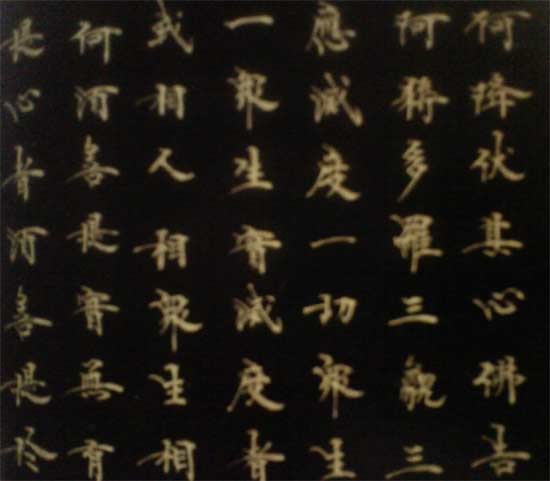 何降伏其心佛告
阿耨多羅三藐三
應滅度一切眾生
一眾生實滅度者
我相人相眾生相
何須菩提實無有
是心者須菩提於